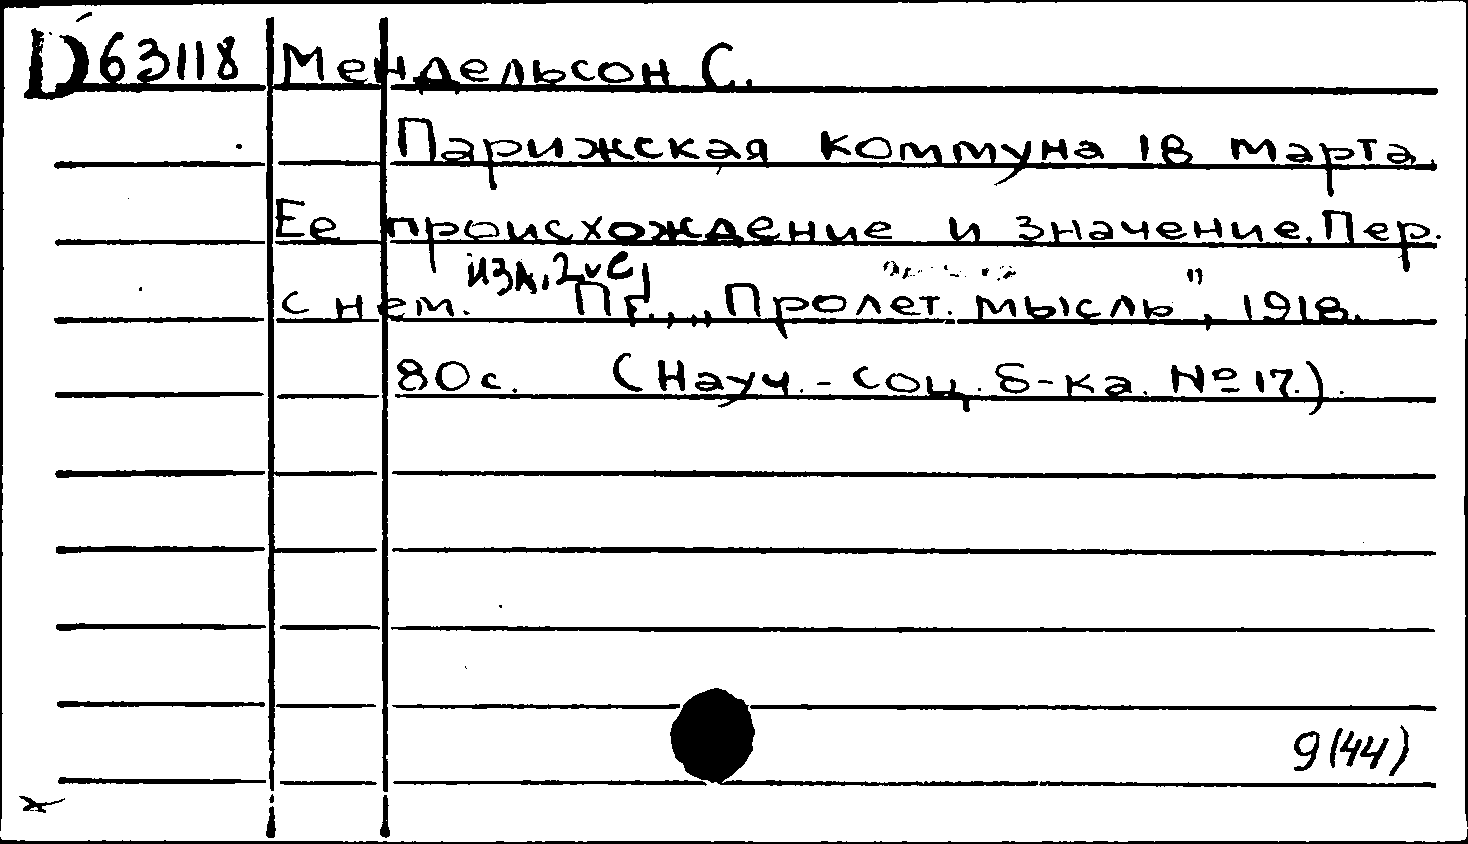 D63118 Мендельсон С.
Парижская коммуна 18 марта.
Ее происхождение и значение. Пер.
с нем. Пг., „Пролет. мысль", 1918.
80 с. (Науч.-соц. б-ка. № 17.).
9(44)